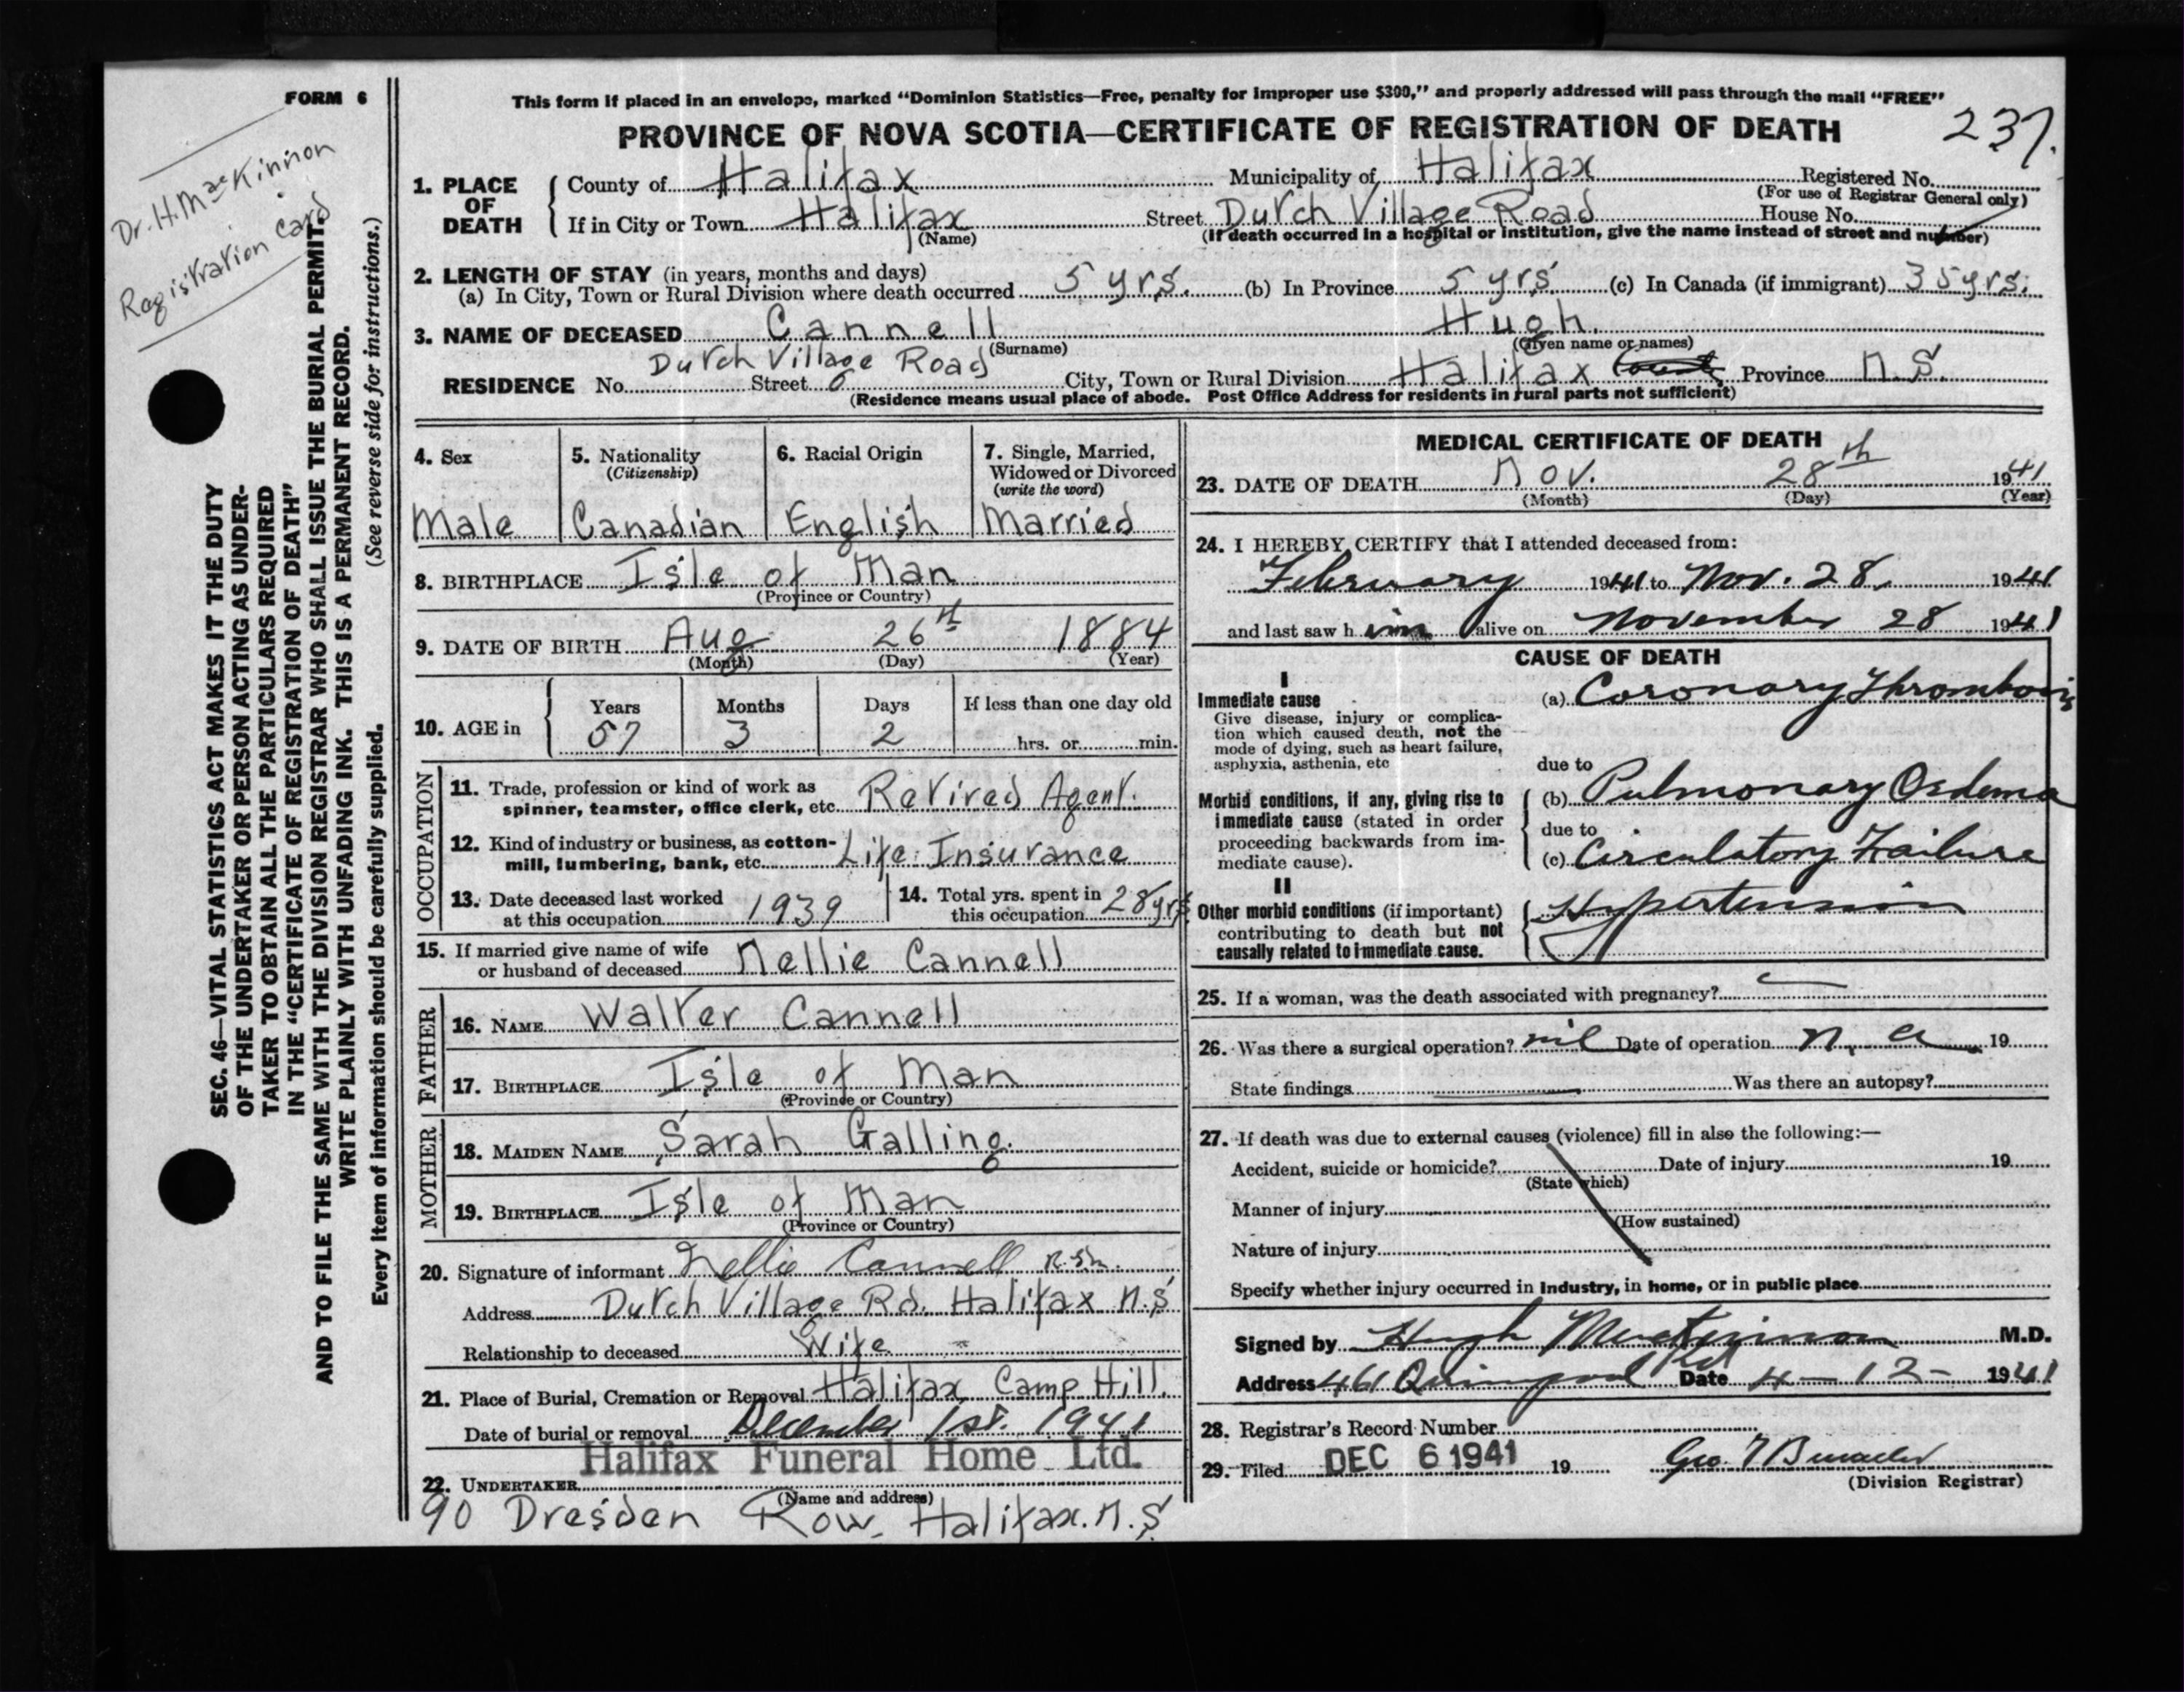 FORM 6
Dr. H. MacKinnon
Registration Card
SEC. 46—VITAL STATISTICS ACT MAKES IT THE DUTY
OF THE UNDERTAKER OR PERSON ACTING AS UNDER-
TAKER TO OBTAIN ALL THE PARTICULARS REQUIRED
IN THE "CERTIFICATE OF REGISTRATION OF DEATH"
AND TO FILE THE SAME WITH THE DIVISION REGISTRAR WHO SHALL ISSUE THE BURIAL PERMIT.
WRITE PLAINLY WITH UNFADING INK. THIS IS A PERMANENT RECORD.
(See reverse side for instructions.)
Every item of information should be carefully supplied.
This form if placed in an envelope, marked "Dominion Statistics—Free, penalty for improper use $300," and properly addressed will pass through the mail "FREE"
PROVINCE OF NOVA SCOTIA—CERTIFICATE OF REGISTRATION OF DEATH 237.
1. PLACE OF DEATH County of Halifax Municipality of Halifax Registered No.
(For use of Registrar General only)
If in City or Town Halifax Street Dutch Village Road House No.
(Name) (If death occurred in a hospital or institution, give the name instead of street and number)
2. LENGTH OF STAY (in years, months and days)
(a) In City, Town or Rural Division where death occurred 5 yrs. (b) In Province 5 yrs (c) In Canada (if immigrant) 35 yrs.
3. NAME OF DECEASED Cannell Hugh.
(Surname) (Given name or names)
Dutch Village Road
RESIDENCE No. Street City, Town or Rural Division Halifax Province N.S.
(Residence means usual place of abode. Post Office Address for residents in rural parts not sufficient)
4. Sex 5. Nationality (Citizenship) 6. Racial Origin 7. Single, Married, Widowed or Divorced (write the word)
Male Canadian English Married
8. BIRTHPLACE Isle of Man
(Province or Country)
9. DATE OF BIRTH Aug 26th 1884
(Month) (Day) (Year)
10. AGE in Years Months Days If less than one day old
57 3 2 hrs. or min.
OCCUPATION
11. Trade, profession or kind of work as
spinner, teamster, office clerk, etc. Retired Agent.
12. Kind of industry or business, as cotton-
mill, lumbering, bank, etc. Life Insurance
13. Date deceased last worked
at this occupation 1939
14. Total yrs. spent in
this occupation 28 yrs
15. If married give name of wife
or husband of deceased Nellie Cannell
FATHER
16. NAME Walter Cannell
17. BIRTHPLACE Isle of Man
(Province or Country)
MOTHER
18. MAIDEN NAME Sarah Galling.
19. BIRTHPLACE Isle of Man
(Province or Country)
20. Signature of informant Nellie Cannell
Address Dutch Village Rd. Halifax N.S
Relationship to deceased Wife
21. Place of Burial, Cremation or Removal Halifax Camp Hill.
Date of burial or removal December 1st. 1941
Halifax Funeral Home Ltd.
22. UNDERTAKER
(Name and address)
90 Dresden Row, Halifax. N.S
MEDICAL CERTIFICATE OF DEATH
23. DATE OF DEATH Nov. 28th 1941
(Month) (Day) (Year)
24. I HEREBY CERTIFY that I attended deceased from:
February 1941 to Nov. 28. 1941
and last saw him alive on November 28 1941
CAUSE OF DEATH
I
Immediate cause (a) Coronary Thrombosis
Give disease, injury or complica-
tion which caused death, not the
mode of dying, such as heart failure,
asphyxia, asthenia, etc
due to
Morbid conditions, if any, giving rise to (b) Pulmonary Oedema
immediate cause (stated in order due to
proceeding backwards from im- (c) Circulatory Failure
mediate cause).
II
Other morbid conditions (if important) Hypertension
contributing to death but not
causally related to immediate cause.
25. If a woman, was the death associated with pregnancy?
26. Was there a surgical operation? nil Date of operation n. a 19
State findings Was there an autopsy?
27. If death was due to external causes (violence) fill in also the following:—
Accident, suicide or homicide? Date of injury 19
(State which)
Manner of injury
(How sustained)
Nature of injury
Specify whether injury occurred in industry, in home, or in public place
Signed by Hugh MacKinnon M.D.
Address 461 Quinpool Rd Date 4-12- 1941
28. Registrar's Record Number
29. Filed DEC 6 1941 19
(Division Registrar)